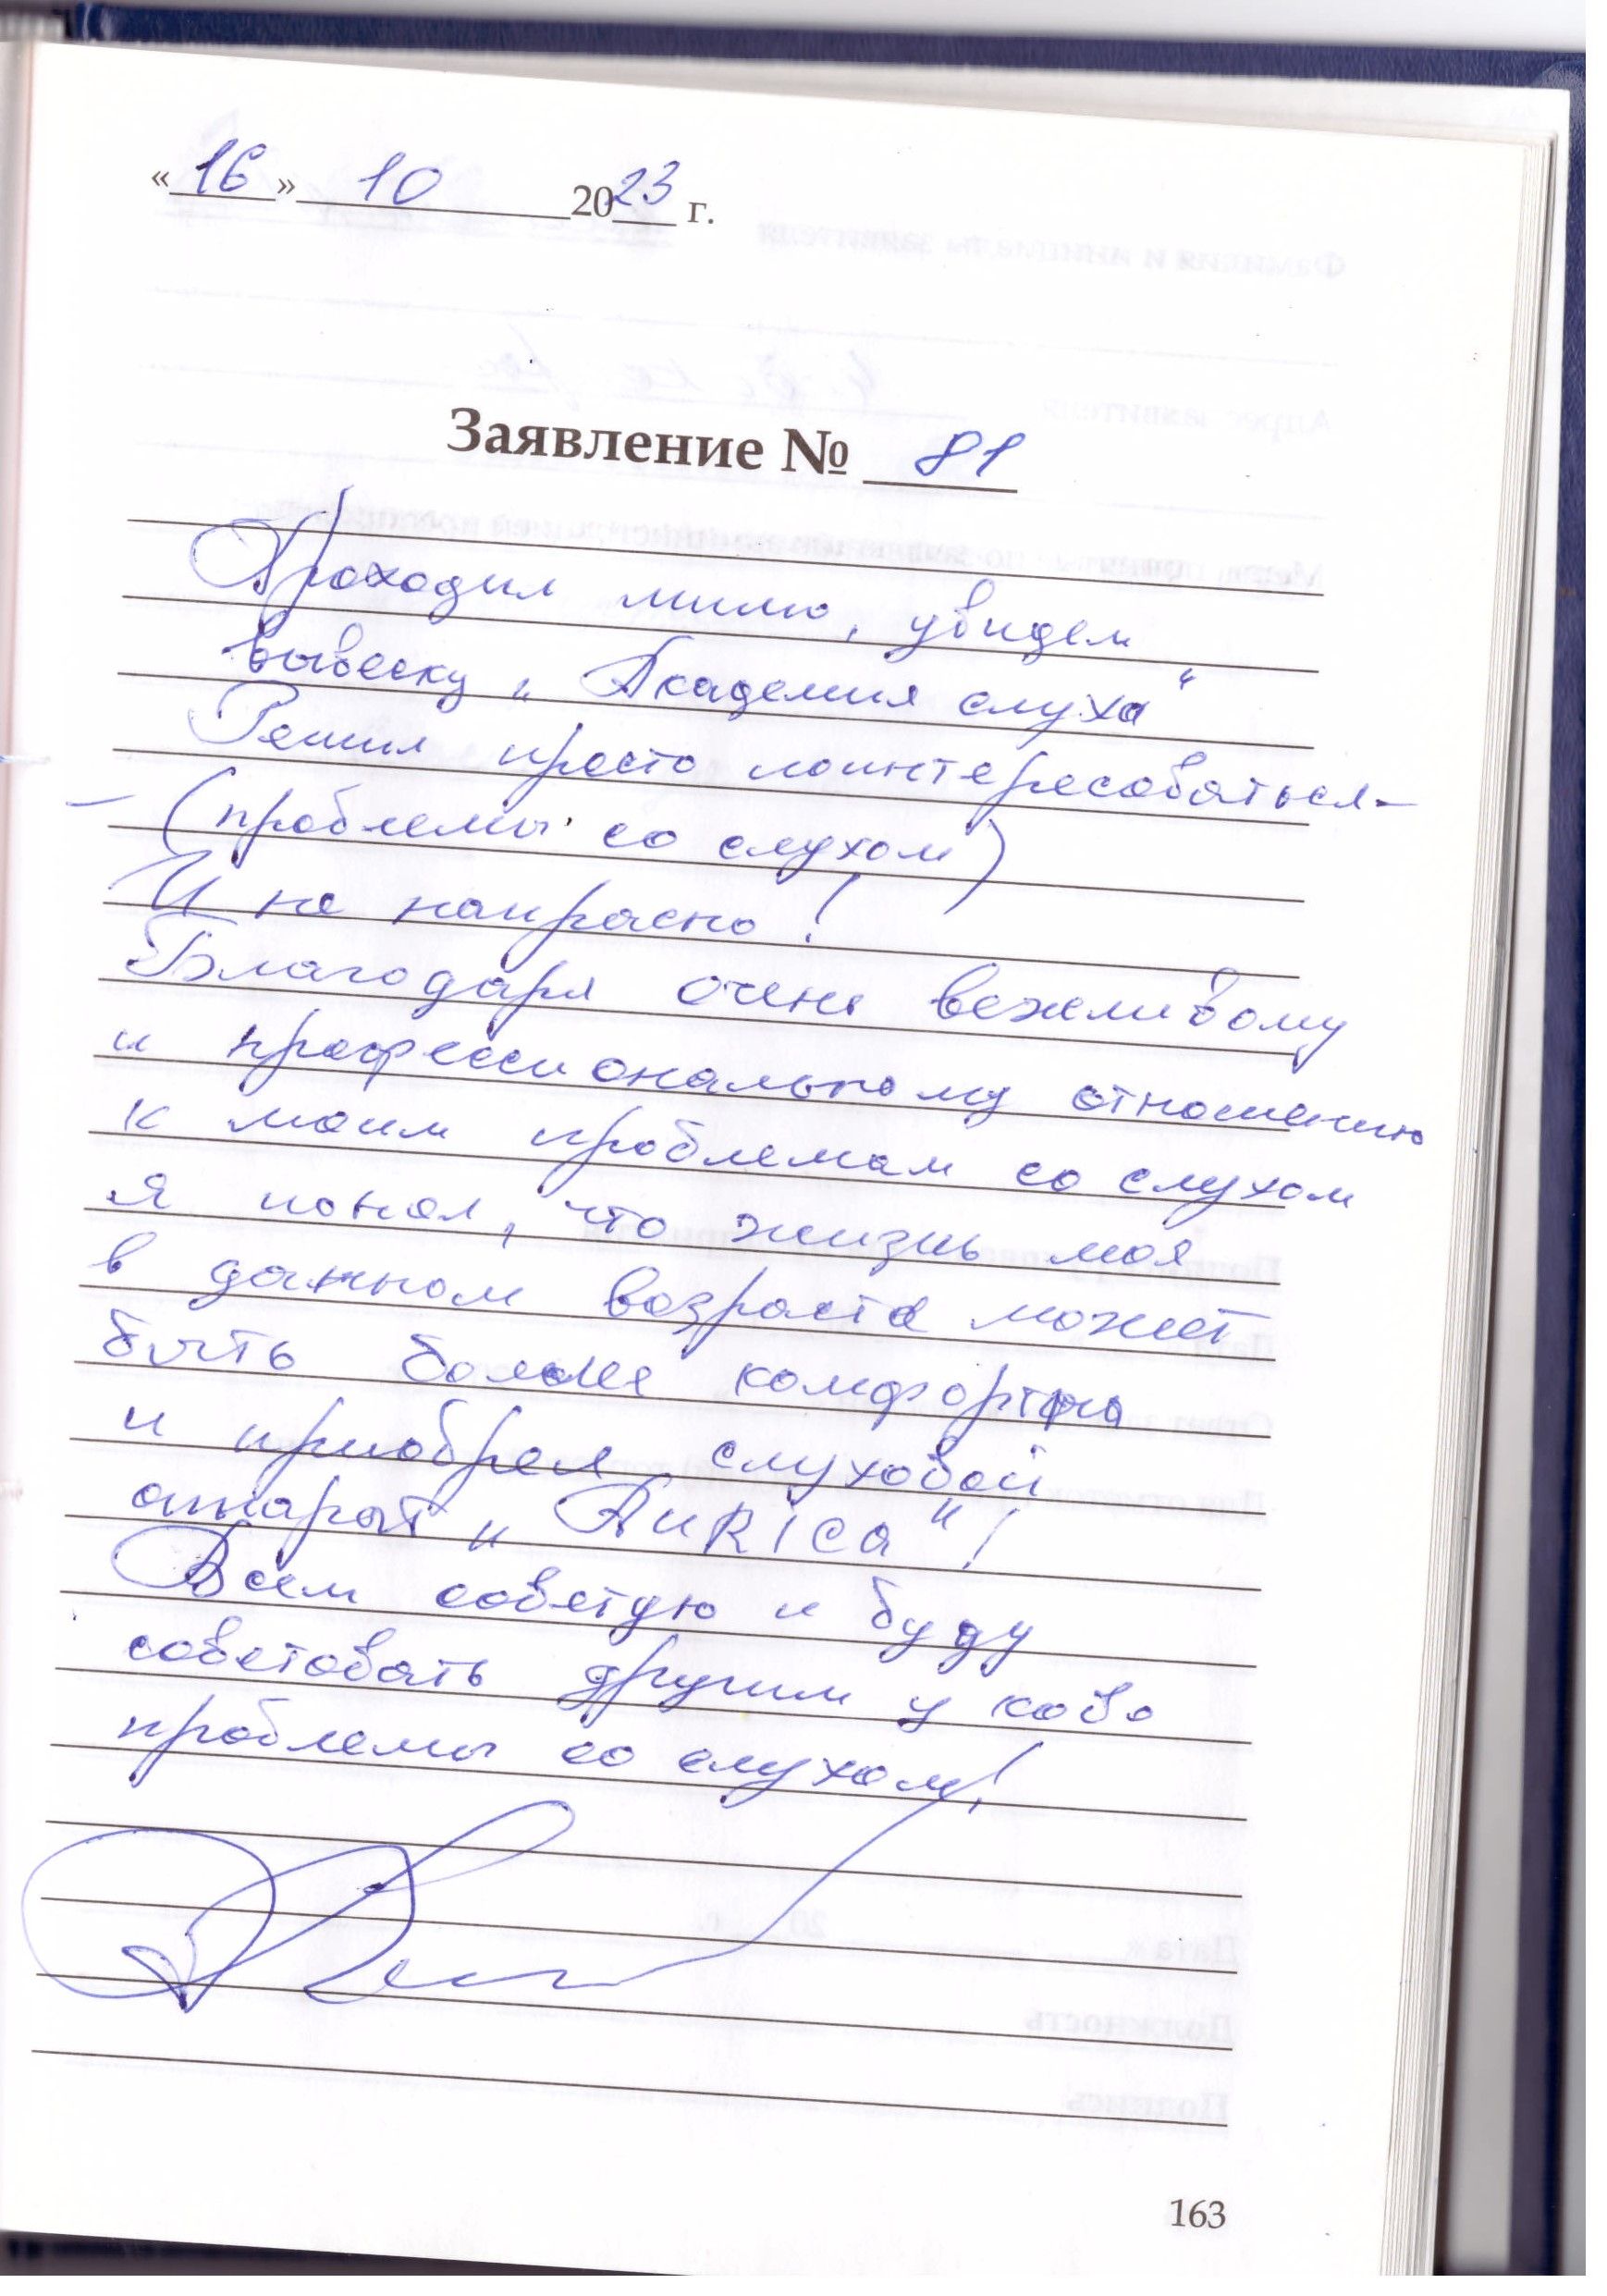 «16» 10 2023 г.
Заявление № 81
Проходил мимо, увидел
вывеску „Академия слуха"
Решил просто поинтересоваться-
- (проблемы со слухом)
И не напрасно!
Благодаря очень вежливому
и профессиональному отношению
к моим проблемам со слухом
я понял, что жизнь моя
в данном возрасте может
быть более комфортна
и приобрел слуховой
аппарат „AuRica"!
Всем советую и буду
советовать другим у кого
проблемы со слухом!
163